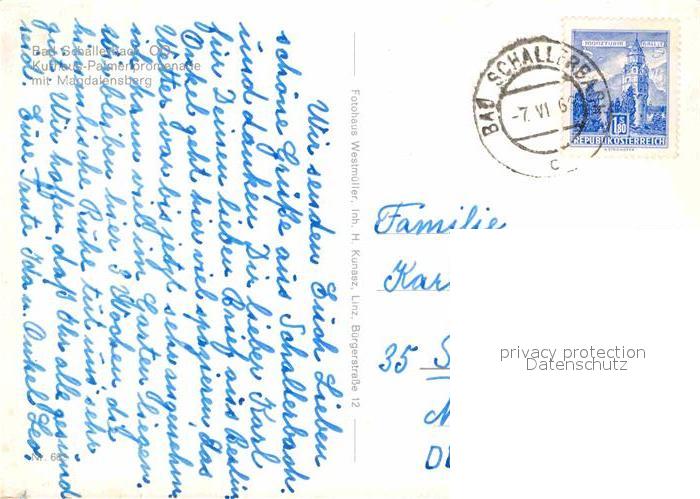 Bad Schallerbach, OÖ.
Kurhaus-Palmenpromenade
mit Magdalensberg
Wir senden Euch Lieben
schöne Grüße aus Schallerbach
und danken Dir lieber Karl
für Deinen lieben Brief aus Berlin.
Onkel geht hier viel spazieren, das
Wetter war bis jetzt sehr angenehm
man will im Garten liegen.
Wir bleiben hier 3 Wochen die
Ruhe tut uns sehr
gut. Wir hoffen, daß Ihr alle gesund
seid. Eure Tante u. Onkel Leo.
Nr. 68
Fotohaus Westmüller, Inh. H. Kunasz, Linz, Bürgerstraße 12
BAD SCHALLERBACH
-7. VI 6
c
MÜNZTURM HALL
1.80
REPUBLIK ÖSTERREICH
Familie
Kar
35 S
privacy protection
Datenschutz